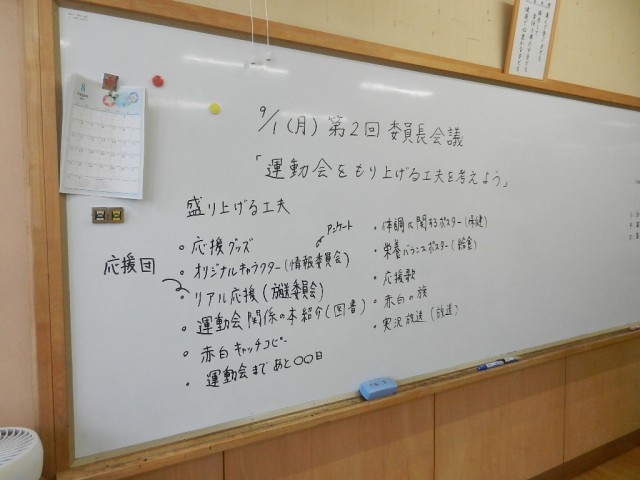 9/1(月)第2回委員長会議
「運動会をもり上げる工夫を考えよう」
盛り上げる工夫
応援団
・応援グッズ
アンケート
・オリジナルキャラクター(情報委員会)
・リアル応援(放送委員会)
・運動会関係の本紹介(図書)
・赤白キャッチコピー
・運動会まであと〇〇日
・体調に関するポスター(保健)
・栄養バランスポスター(給食)
・応援歌
・赤白の旗
・実況放送(放送)
8